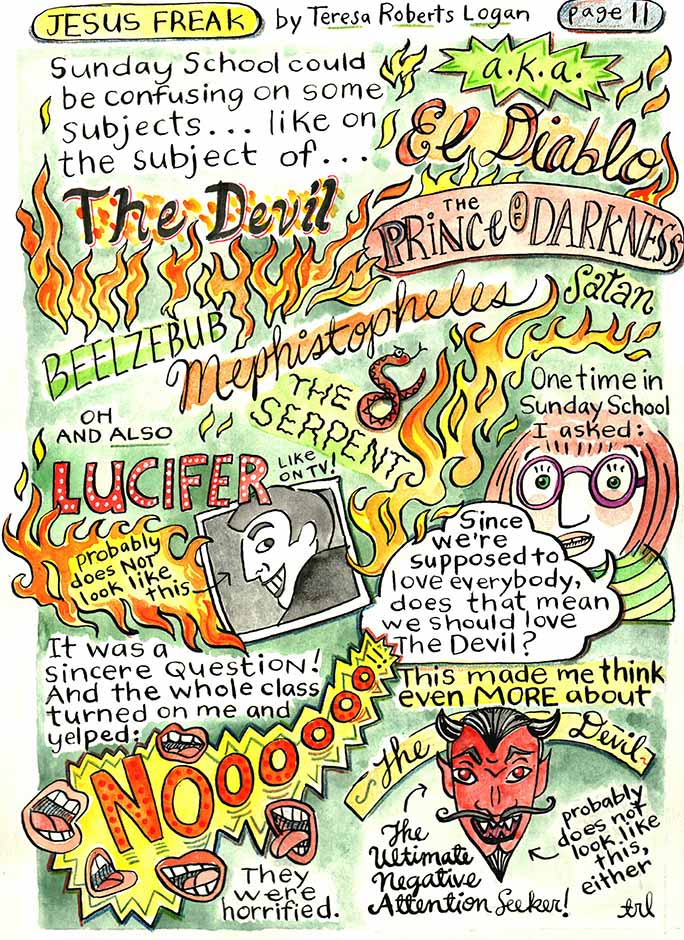 JESUS FREAK by Teresa Roberts Logan page 11
Sunday School could
be confusing on some
subjects... like on
the subject of...
The Devil
a.k.a.
El Diablo
THE
PRINCE OF DARKNESS
BEELZEBUB
Mephistopheles
Satan
THE
SERPENT
OH
AND ALSO
LUCIFER
LIKE
ON TV!
probably
does NOT
look like
this
One time in
Sunday School
I asked:
Since
we're
supposed to
love everybody,
does that mean
we should love
The Devil?
It was a
sincere QUESTION!
And the whole class
turned on me and
yelped:
NOOOOOOO!!
They
were
horrified.
This made me think
even MORE about
The Devil
The
Ultimate
Negative
Attention Seeker!
probably
does not
look like
this,
either
trl